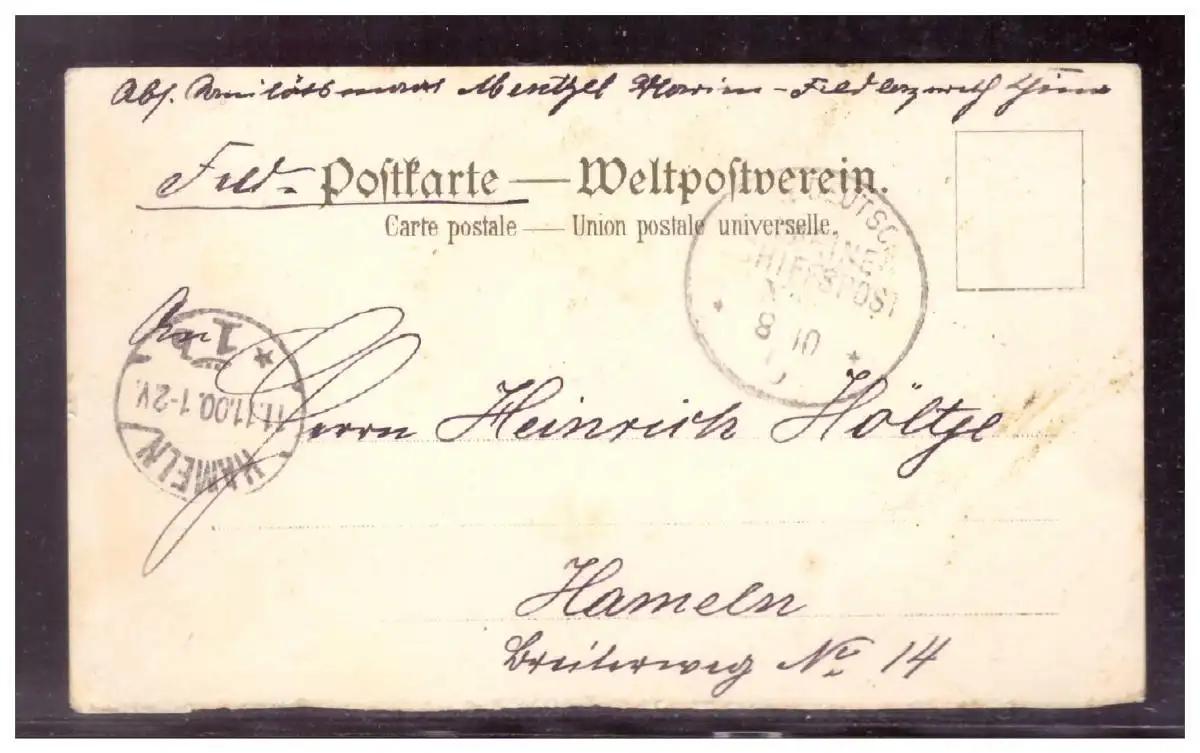 Abs. Sanitätsmaat Mentzel Marine-Feldlazareth China
Feld-Postkarte — Weltpostverein.
Carte postale — Union postale universelle.
DEUTSCHE
MARINE-
SCHIFFSPOST
8 10
An
* 1
11.11.00.1-2V.
HAMELN
Herrn Heinrich Höltje
Hameln
Breiterweg No 14